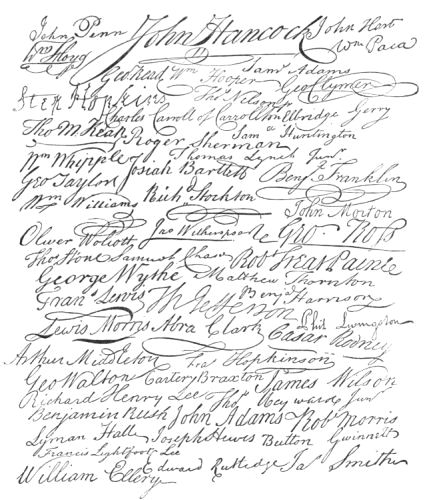 John Penn John Hancock John Hart
Wm Floyd Wm Paca
Geo Read Wm Hooper Saml Adams
Geo Clymer
Step Hopkins Thos Nelson jr
Charles Carroll of Carrollton Elbridge Gerry
Tho M: Kean Roger Sherman Sam el Huntington
Wm Whipple Thomas Lynch Junr
Josiah Bartlett Benj. Franklin
Geo Taylor Richd Stockton
Wm Williams John Morton
Oliver Wolcott Jno Witherspoon Geo. Ross
Thos Stone Samuel Chase Robt Treat Paine
George Wythe Matthew Thornton
Frans. Lewis Th Jefferson Benj Harrison
Lewis Morris Abra Clark Phil. Livingston
Cæsar Rodney
Arthur Middleton Fras Hopkinson
Geo Walton Carter Braxton James Wilson
Richard Henry Lee Thos Heyward Junr
Benjamin Rush John Adams Robt Morris
Lyman Hall Joseph Hewes Button Gwinnett
Francis Lightfoot Lee
William Ellery Edward Rutledge Jas Smith